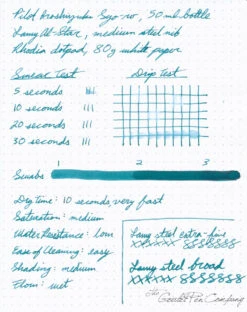 Pilot Iroshizuku Syo-ro, 50 ml bottle
Lamy Al-Star, medium steel nib
Rhodia dotpad, 80g white paper
Smear Test
Drip Test
5 seconds
10 seconds
20 seconds
30 seconds
1 2 3
Swabs
Dry Time: 10 seconds, very fast
Saturation: medium
Water Resistance: low
Ease of Cleaning: easy
Shading: medium
Flow: wet
Lamy steel extra-fine
xxxxxx 8888888
Lamy steel broad
xxxxxx 8888888
The Goulet Pen Company